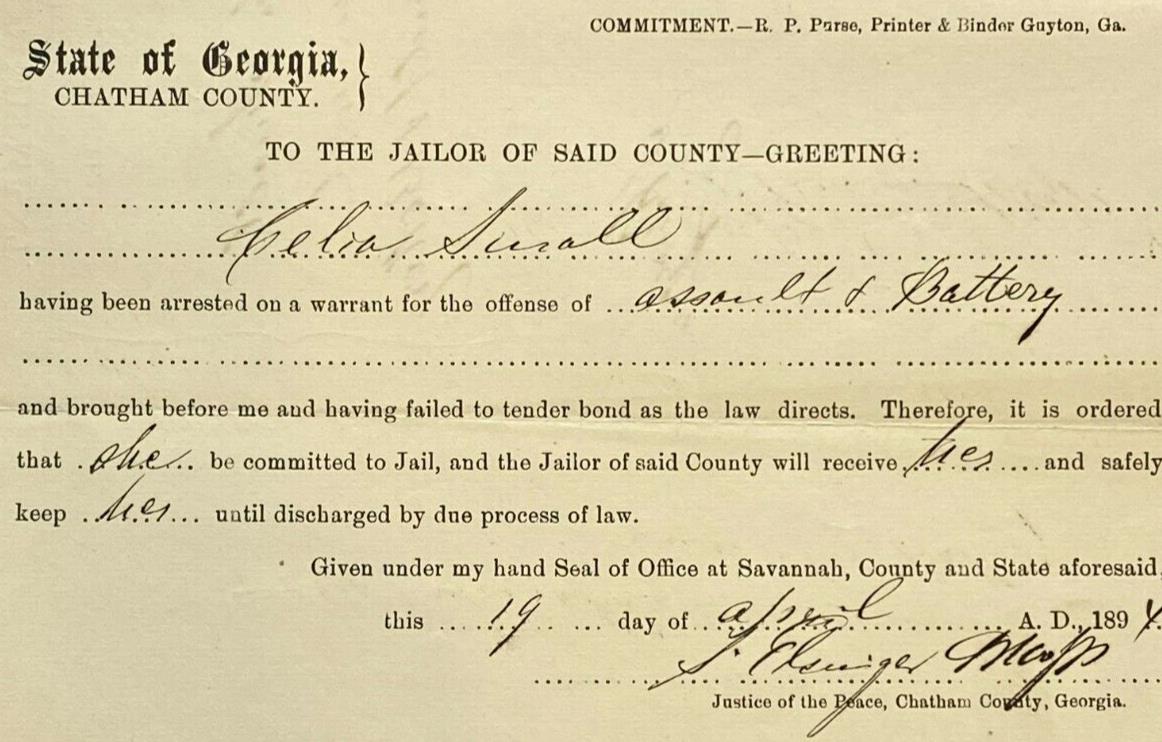 COMMITMENT.—R. P. Purse, Printer & Binder Guyton, Ga.
State of Georgia,
CHATHAM COUNTY.
TO THE JAILOR OF SAID COUNTY—GREETING:
Celia Small
having been arrested on a warrant for the offense of assault & Battery
and brought before me and having failed to tender bond as the law directs. Therefore, it is ordered
that she be committed to Jail, and the Jailor of said County will receive her and safely
keep her until discharged by due process of law.
Given under my hand Seal of Office at Savannah, County and State aforesaid,
this 19 day of april A. D., 1894.
Justice of the Peace, Chatham County, Georgia.